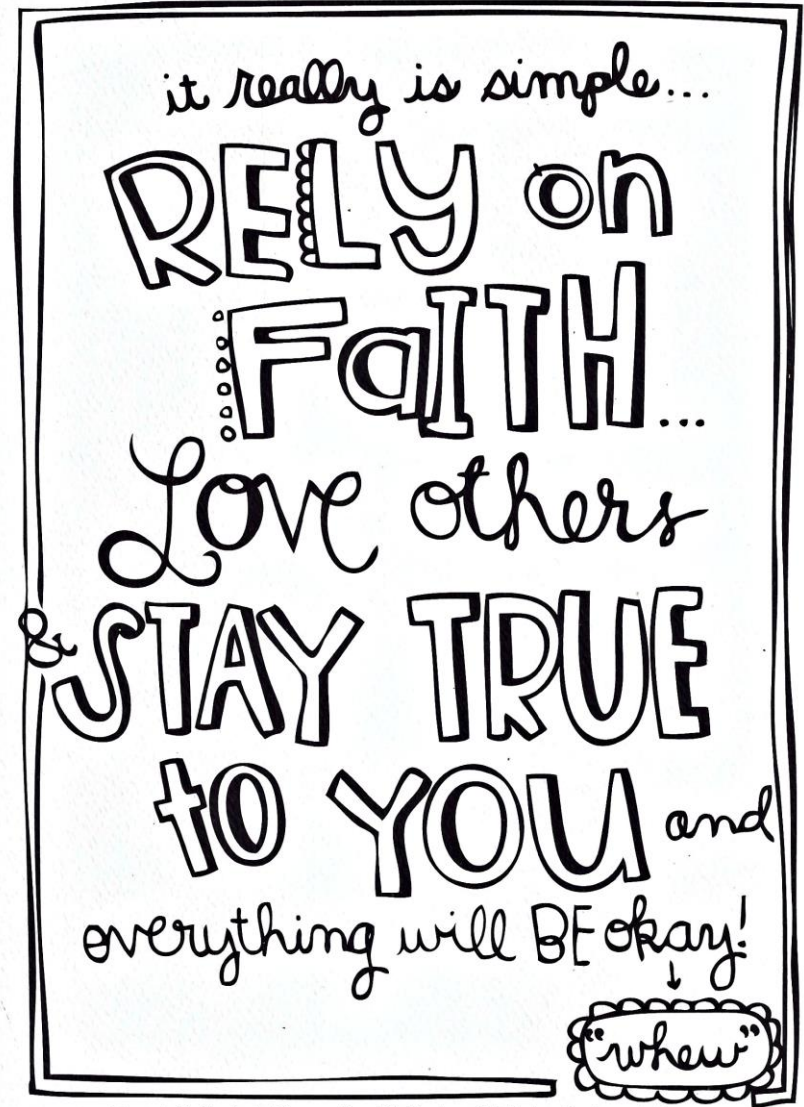 it really is simple...
RELY on
FaITH...
Love others
& STAY TRUE
to YOU and
everything will BE okay!
"whew"